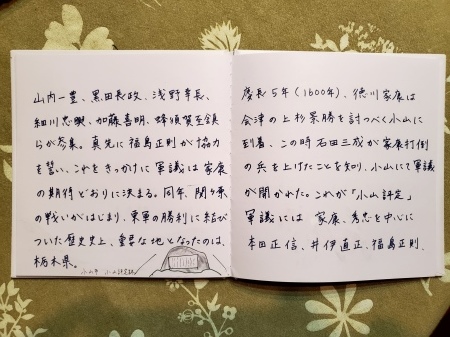 慶長5年(1600年)、徳川家康は
会津の上杉景勝を討つべく小山に
到着、この時石田三成が家康打倒
の兵を上げたことを知り、小山にて軍議
が開かれた。これが「小山評定」
軍議には 家康、秀忠を中心に
本田正信、井伊直正、福島正則、
山内一豊、黒田長政、浅野幸長、
細川忠興、加藤嘉明、蜂須賀至鎮
らが参集。真先に福島正則が協力
を誓い、これをきっかけに軍議は家康
の期待どおりに決まる。同年、関ヶ原
の戦いがはじまり、東軍の勝利に結び
ついた歴史上、重要な地となったのは、
栃木県。
小山市 小山評定跡